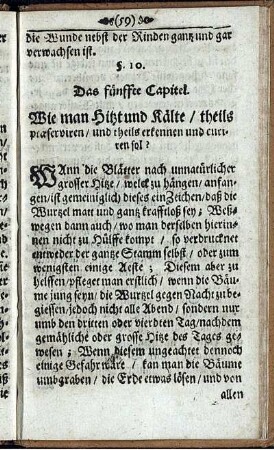 (59)
die Wunde nebst der Rinden gantz und gar
verwachsen ist.
§. 10.
Das fünffte Capitel.
Wie man Hitzt und Kälte / theils
præserviren / und theils erkennen und curi-
ren sol?
WAnn die Blätter nach unnatürlicher
grosser Hitze / welck zu hängen / anfan-
gen / ist gemeiniglich dieses ein Zeichen / daß die
Wurzel matt und gantz krafftloß sey; Weß-
wegen dann auch / wo man derselben hierin-
nen nicht zu Hülffe kompt / so verdrucknet
entweder der gantz Stamm selbst / oder zum
wenigsten einige Aeste; Diesem aber zu
helffen / pfleget man erstlich / wenn die Bäu-
me jung seyn / die Wurzel gegen Nacht zu be-
giessen / jedoch nicht alle Abend / sondern nur
umb den dritten oder vierdten Tag / nachdem
gemähliche oder grosse Hitze des Tages ge-
wesen; Wenn diesem ungeachtet dennoch
einige Gefahr wäre / kan man die Bäume
umbgraben / die Erde etwas lösen / und von
allen